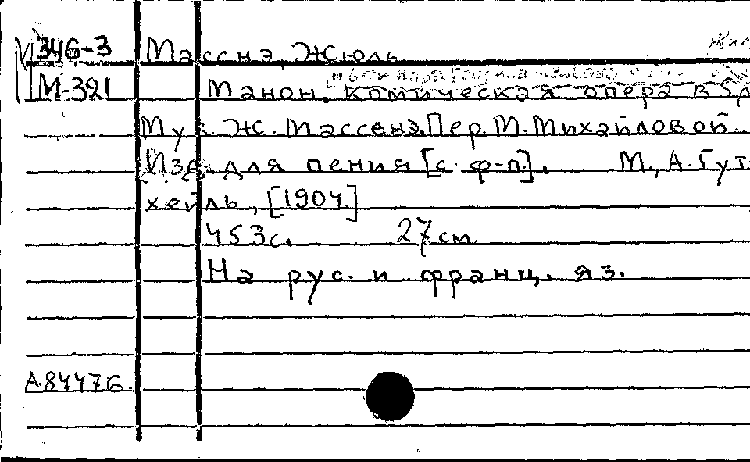 М346-3 Массна, Жюль
М-391 Манон. Комическая опера в 5 д
Муз. Ж. Массена Пер. М. Михайловой.
Изд. для пения [с ф-п]. М., А. Гут
хейль, [1904]
453 с. 27 см
На рус. и франц. яз.
А84476